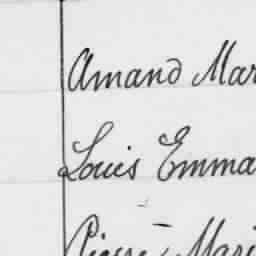 Amand Mar
Louis Emma
Pierre Mari